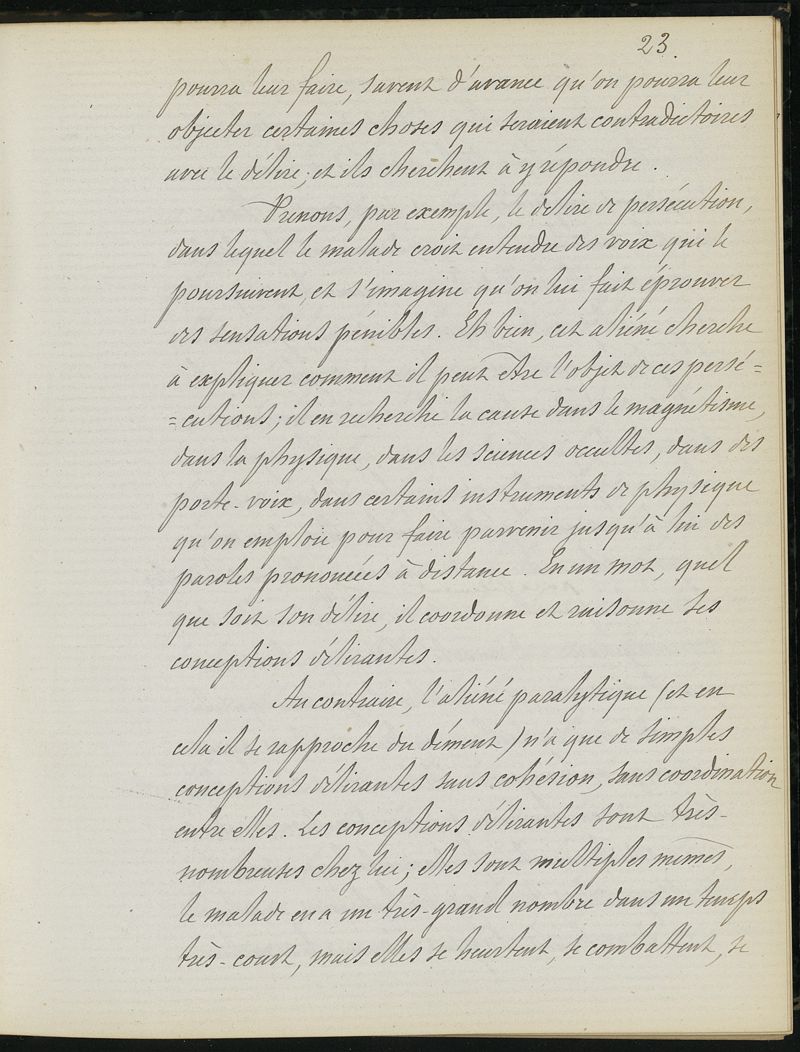 23.
pourra leur faire, savent d'avance qu'on pourra leur
objecter certaines choses qui seraient contradictoires
avec le délire; et ils cherchent à y répondre.
Prenons, par exemple, le délire de persécution,
dans lequel le malade croit entendre des voix qui le
poursuivent, et s'imagine qu'on lui fait éprouver
des sensations pénibles. Eh bien, cet aliéné cherche
à expliquer comment il peut être l'objet de ces persé=
=cutions; il en recherche la cause dans le magnétisme,
dans la physique, dans les sciences occultes, dans des
porte-voix, dans certains instruments de physique
qu'on emploie pour faire parvenir jusqu'à lui des
paroles prononcées à distance. En un mot, quel
que soit son délire, il coordonne et raisonne ses
conceptions délirantes.
Au contraire, l'aliéné paralytique (et en
cela il se rapproche du dément) n'a que de simples
conceptions délirantes sans cohésion, sans coordination
entre elles. Les conceptions délirantes sont très-
nombreuses chez lui; elles sont multiples mêmes,
le malade en a un très-grand nombre dans un temps
très-court, mais elles se heurtent, se combattent, se